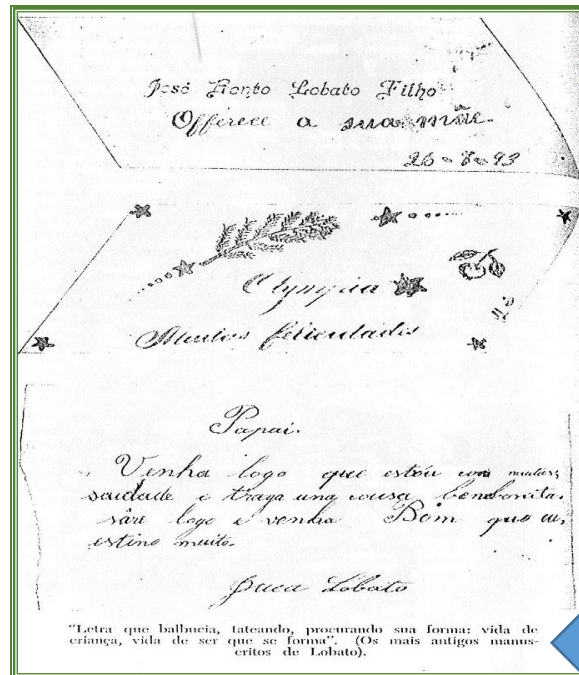 José Bento Lobato Filho
Offerece a sua mãe.
26-8-93
Olympia
Muitas felicidades
Papai.
Venha logo que estou com muitas
saudade e traga uma cousa bem bonita.
sáre logo e venha Bom que eu
estimo muito.
Juca Lobato
"Letra que balbucia, tateando, procurando sua forma: vida de
criança, vida de ser que se forma". (Os mais antigos manus-
critos de Lobato).